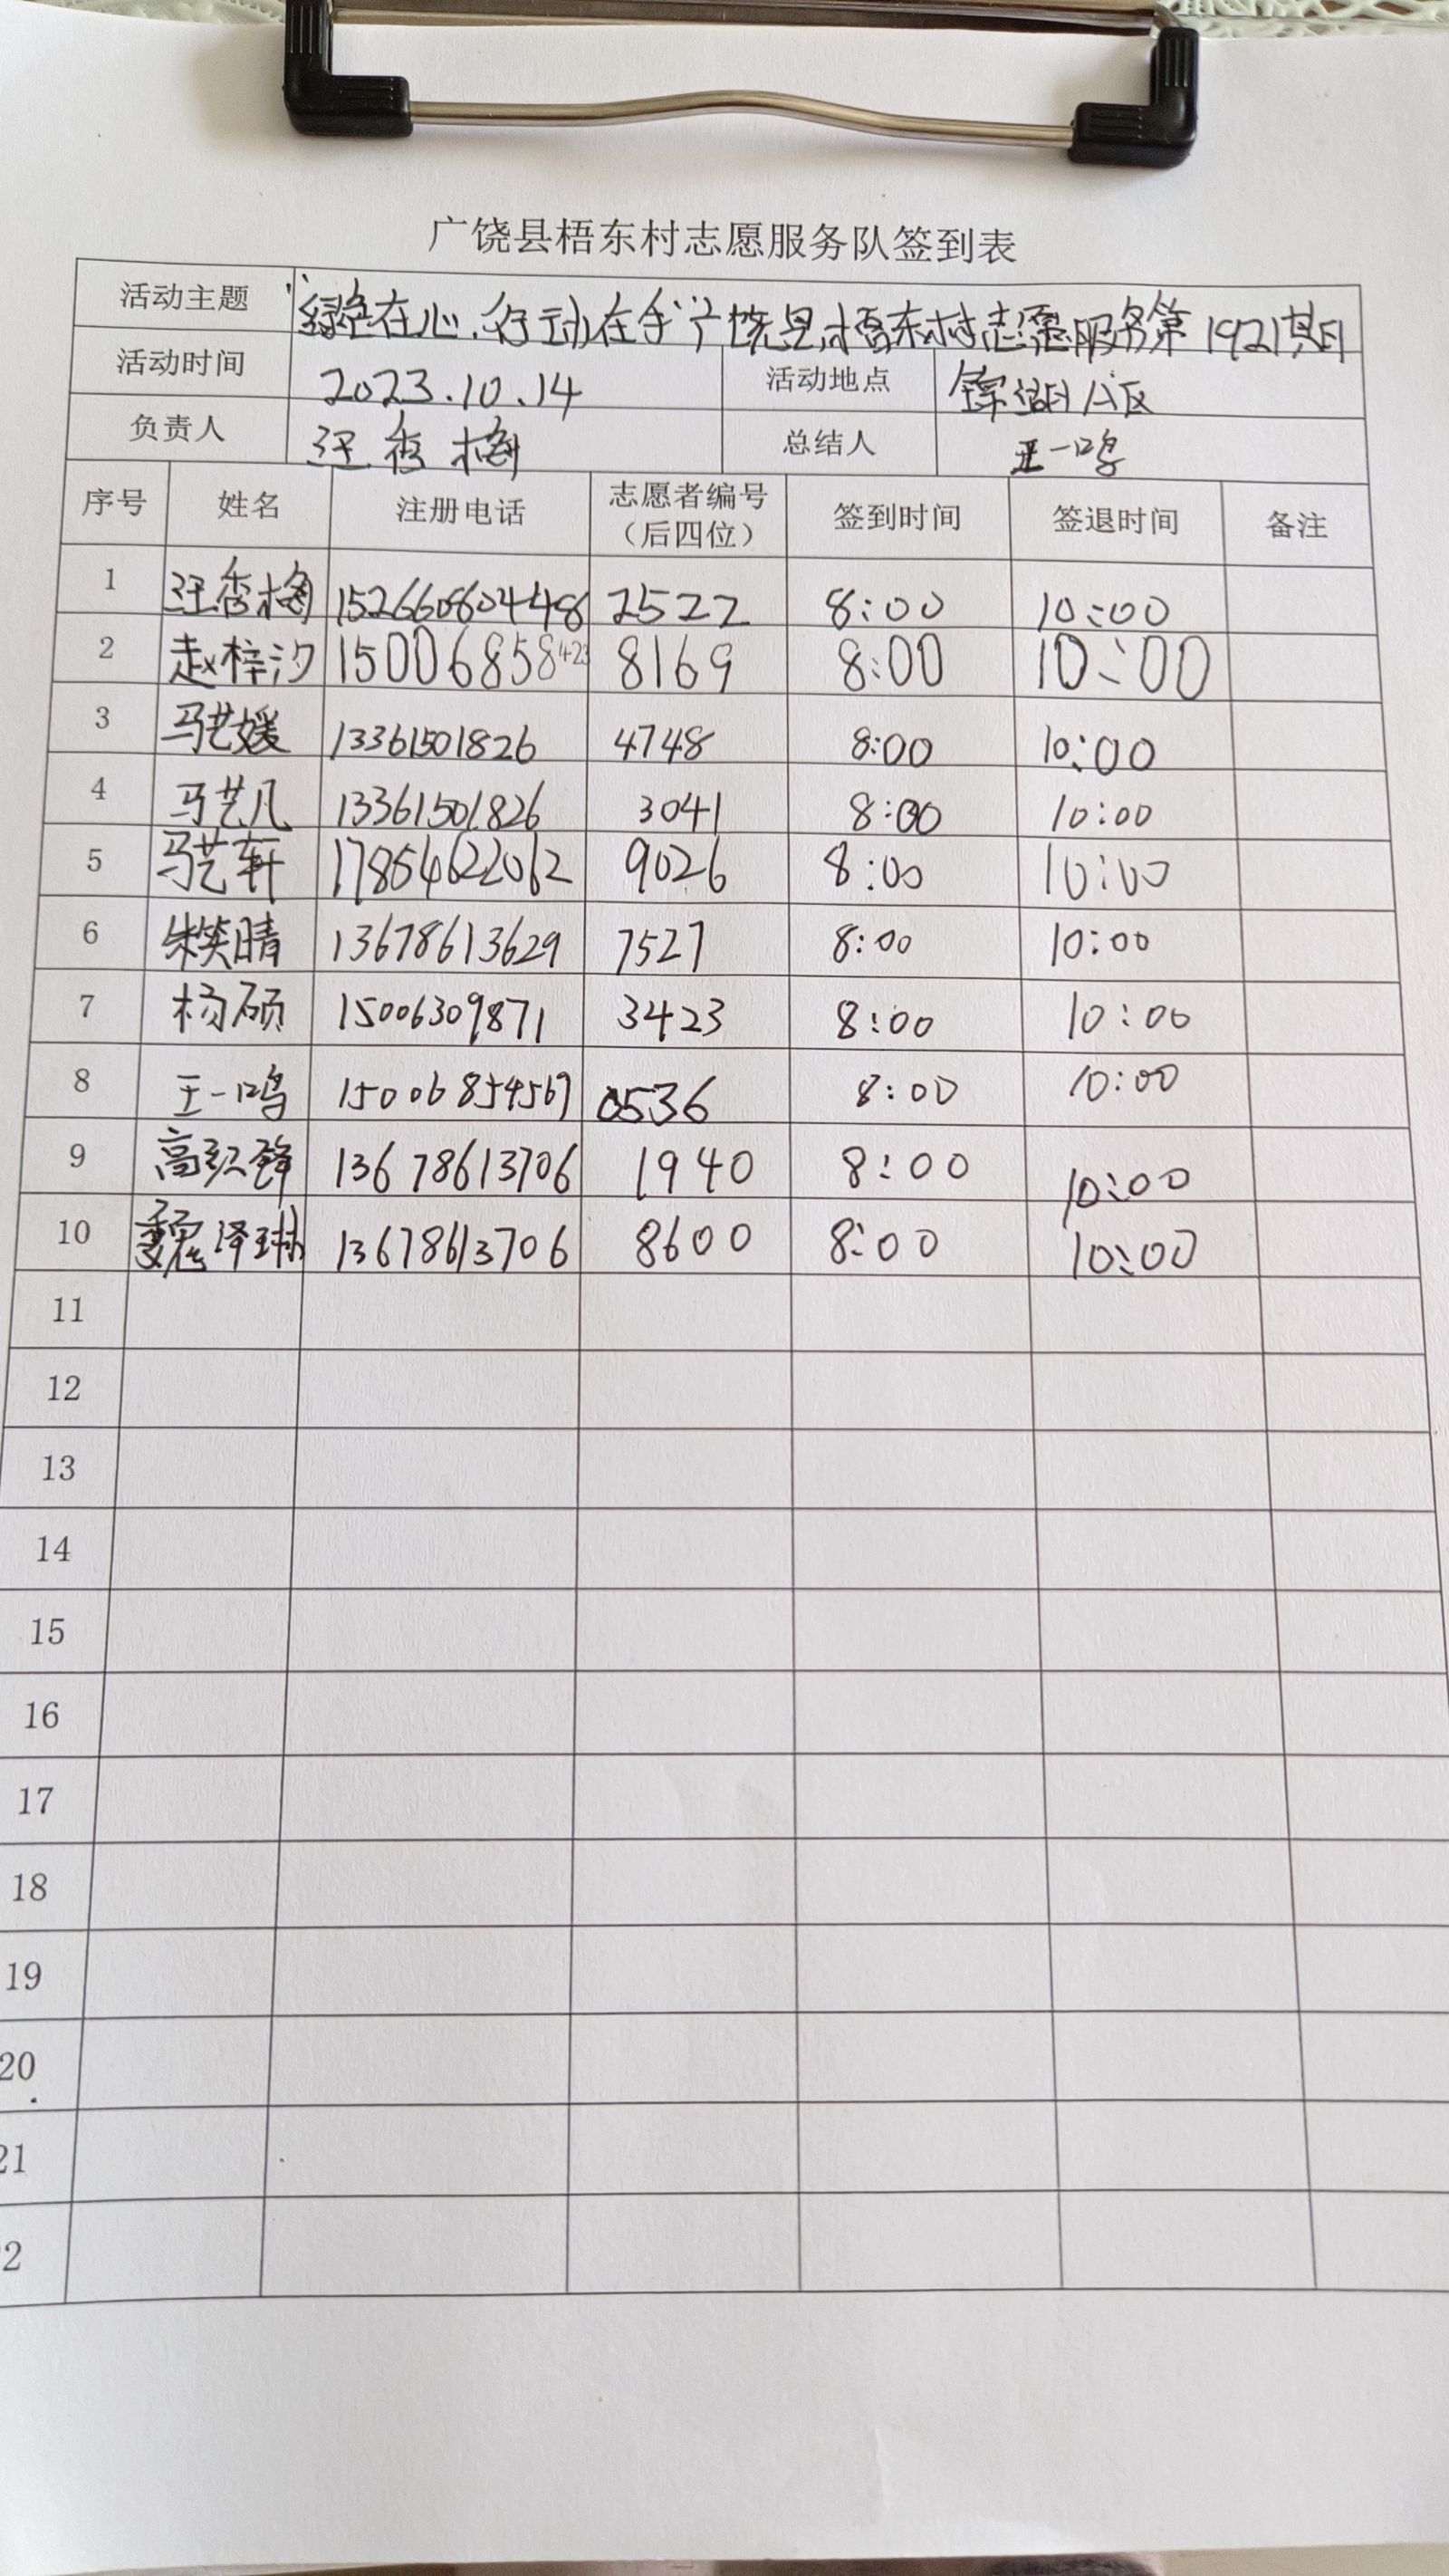 广饶县梧东村志愿服务队签到表
活动主题 "绿色在心.行动在手"广饶县梧东村志愿服务第1921期
活动时间 2023.10.14 活动地点 孙武湖公区
负责人 汪秀梅 总结人 王一鸣
序号 姓名 注册电话 志愿者编号（后四位） 签到时间 签退时间 备注
1 汪秀梅 2522 8:00 10:00
2 赵梓汐 15006858423 8169 8:00 10:00
3 马艺媛 13361501826 4748 8:00 10:00
4 马艺凡 13361501826 3041 8:00 10:00
5 马艺轩 17854622062 9026 8:00 10:00
6 朱笑晴 13678613629 7527 8:00 10:00
7 杨硕 15006309871 3423 8:00 10:00
8 王一鸣 15006854567 0536 8:00 10:00
9 高红锋 13678613706 1940 8:00 10:00
10 魏泽琳 13678613706 8600 8:00 10:00
11
12
13
14
15
16
17
18
19
20
21
2